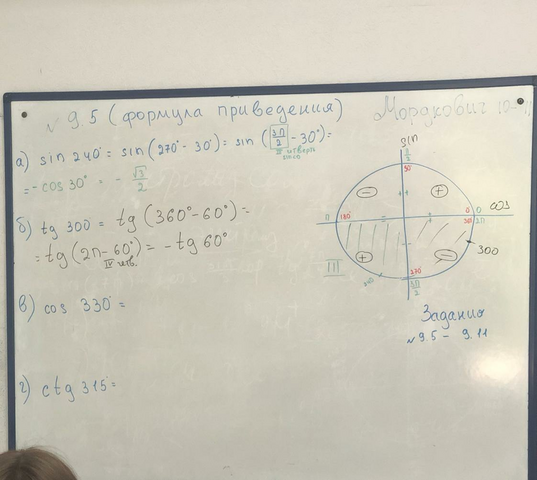 № 9.5 (формула приведения)
Мордкович 10-11
а) sin 240° = sin (270° - 30°) = sin (3π/2 - 30°) =
III четверть
sin cos
= - cos 30° = - √3/2
б) tg 300° = tg (360° - 60°) =
= tg (2π - 60°) = - tg 60°
IV четв.
в) cos 330° =
г) ctg 315° =
sin
π/2
90°
- +
π 180° 0 0 cos
360 2π
III + -
300
270°
3π/2
Задания
№ 9.5 - 9.11